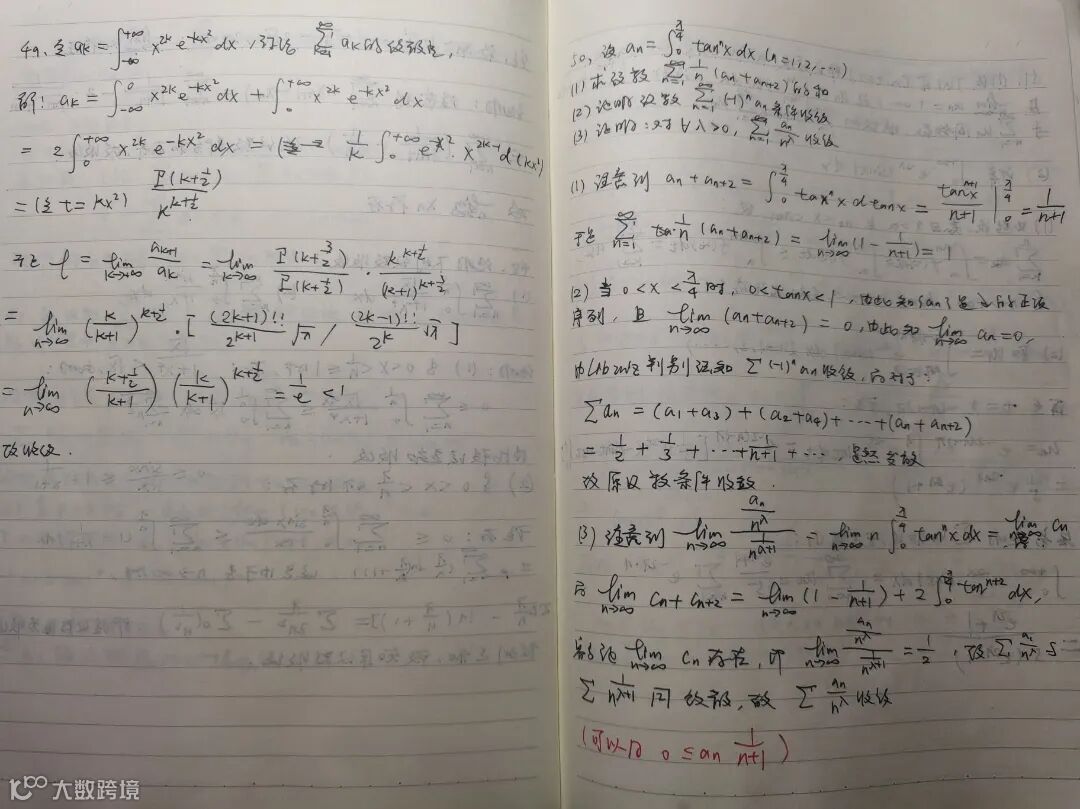 49. 令 ak = ∫_{-∞}^{+∞} x^{2k} e^{-kx²} dx, 讨论 ∑_{k=1}^{∞} ak 的敛散性,
解: ak = ∫_{-∞}^{0} x^{2k} e^{-kx²} dx + ∫_{0}^{+∞} x^{2k} e^{-kx²} dx
= 2∫_{0}^{+∞} x^{2k} e^{-kx²} dx = 1/k ∫_{0}^{+∞} · x^{2k-1} d(kx²)
= (令 t = kx²) Γ(k+1/2) / k^{k+1/2}
于是 l = lim_{k→+∞} a_{k+1}/a_k = lim_{k→∞} Γ(k+3/2)/Γ(k+1/2) · k^{k+1/2}/(k+1)^{k+3/2}
= lim_{n→∞} (k/(k+1))^{k+1/2} · [ (2k+1)!!/2^{k+1} √π / (2k-1)!!/2^k √π ]
= lim_{n→∞} ((k+1/2)/(k+1)) (k/(k+1))^{k+1/2} = 1/e < 1
故收敛.
50, 设 an = ∫_0^{π/4} tan^n x dx (n=1,2,...)
(1) 求级数 ∑_{n=1}^{∞} 1/n (an+an+2) 的和
(2) 证明级数 ∑_{n=1}^{∞} (-1)^n an 条件收敛
(3) 证明: 对 ∀λ>0, ∑_{n=1}^{∞} an/n^λ 收敛
(1) 注意到 an+an+2 = ∫_0^{π/4} tan^n x d tanx = tan^{n+1}x/(n+1) |_0^{π/4} = 1/(n+1)
于是 ∑_{n=1}^{∞} 1/n (an+an+2) = lim_{n→∞} (1 - 1/(n+1)) = 1
(2) 当 0<x<π/4 时, 0<tanx<1, 由此知{an}是单调正项
序列, 且 lim_{n→∞} (an+an+2) = 0, 由此知 lim_{n→∞} an=0,
由Leibniz判别法知 ∑(-1)^n an 收敛, 而对于:
∑an = (a1+a3) + (a2+a4) + ··· + (an+an+2)
= 1/2 + 1/3 + ··· + 1/(n+1) + ···, 显然发散
故原级数条件收敛.
(3) 注意到 lim_{n→∞} (an/n^λ)/(1/n^{λ+1}) = lim_{n→∞} n∫_0^{π/4} tan^n x dx = lim_{n→∞} Cn
而 lim_{n→∞} Cn+Cn+2 = lim_{n→∞} (1 - 1/(n+1)) + 2∫_0^{π/4} tan^{n+2} dx,
lim_{n→∞} Cn存在, 即 lim_{n→∞} (an/n^λ)/(1/n^{λ+1}) = 1/2, 故∑ an/n^λ 与
∑ 1/n^{λ+1} 同敛散, 故 ∑ an/n^λ 收敛
(可以用 0 ≤ an 1/(n+1))
大数跨境